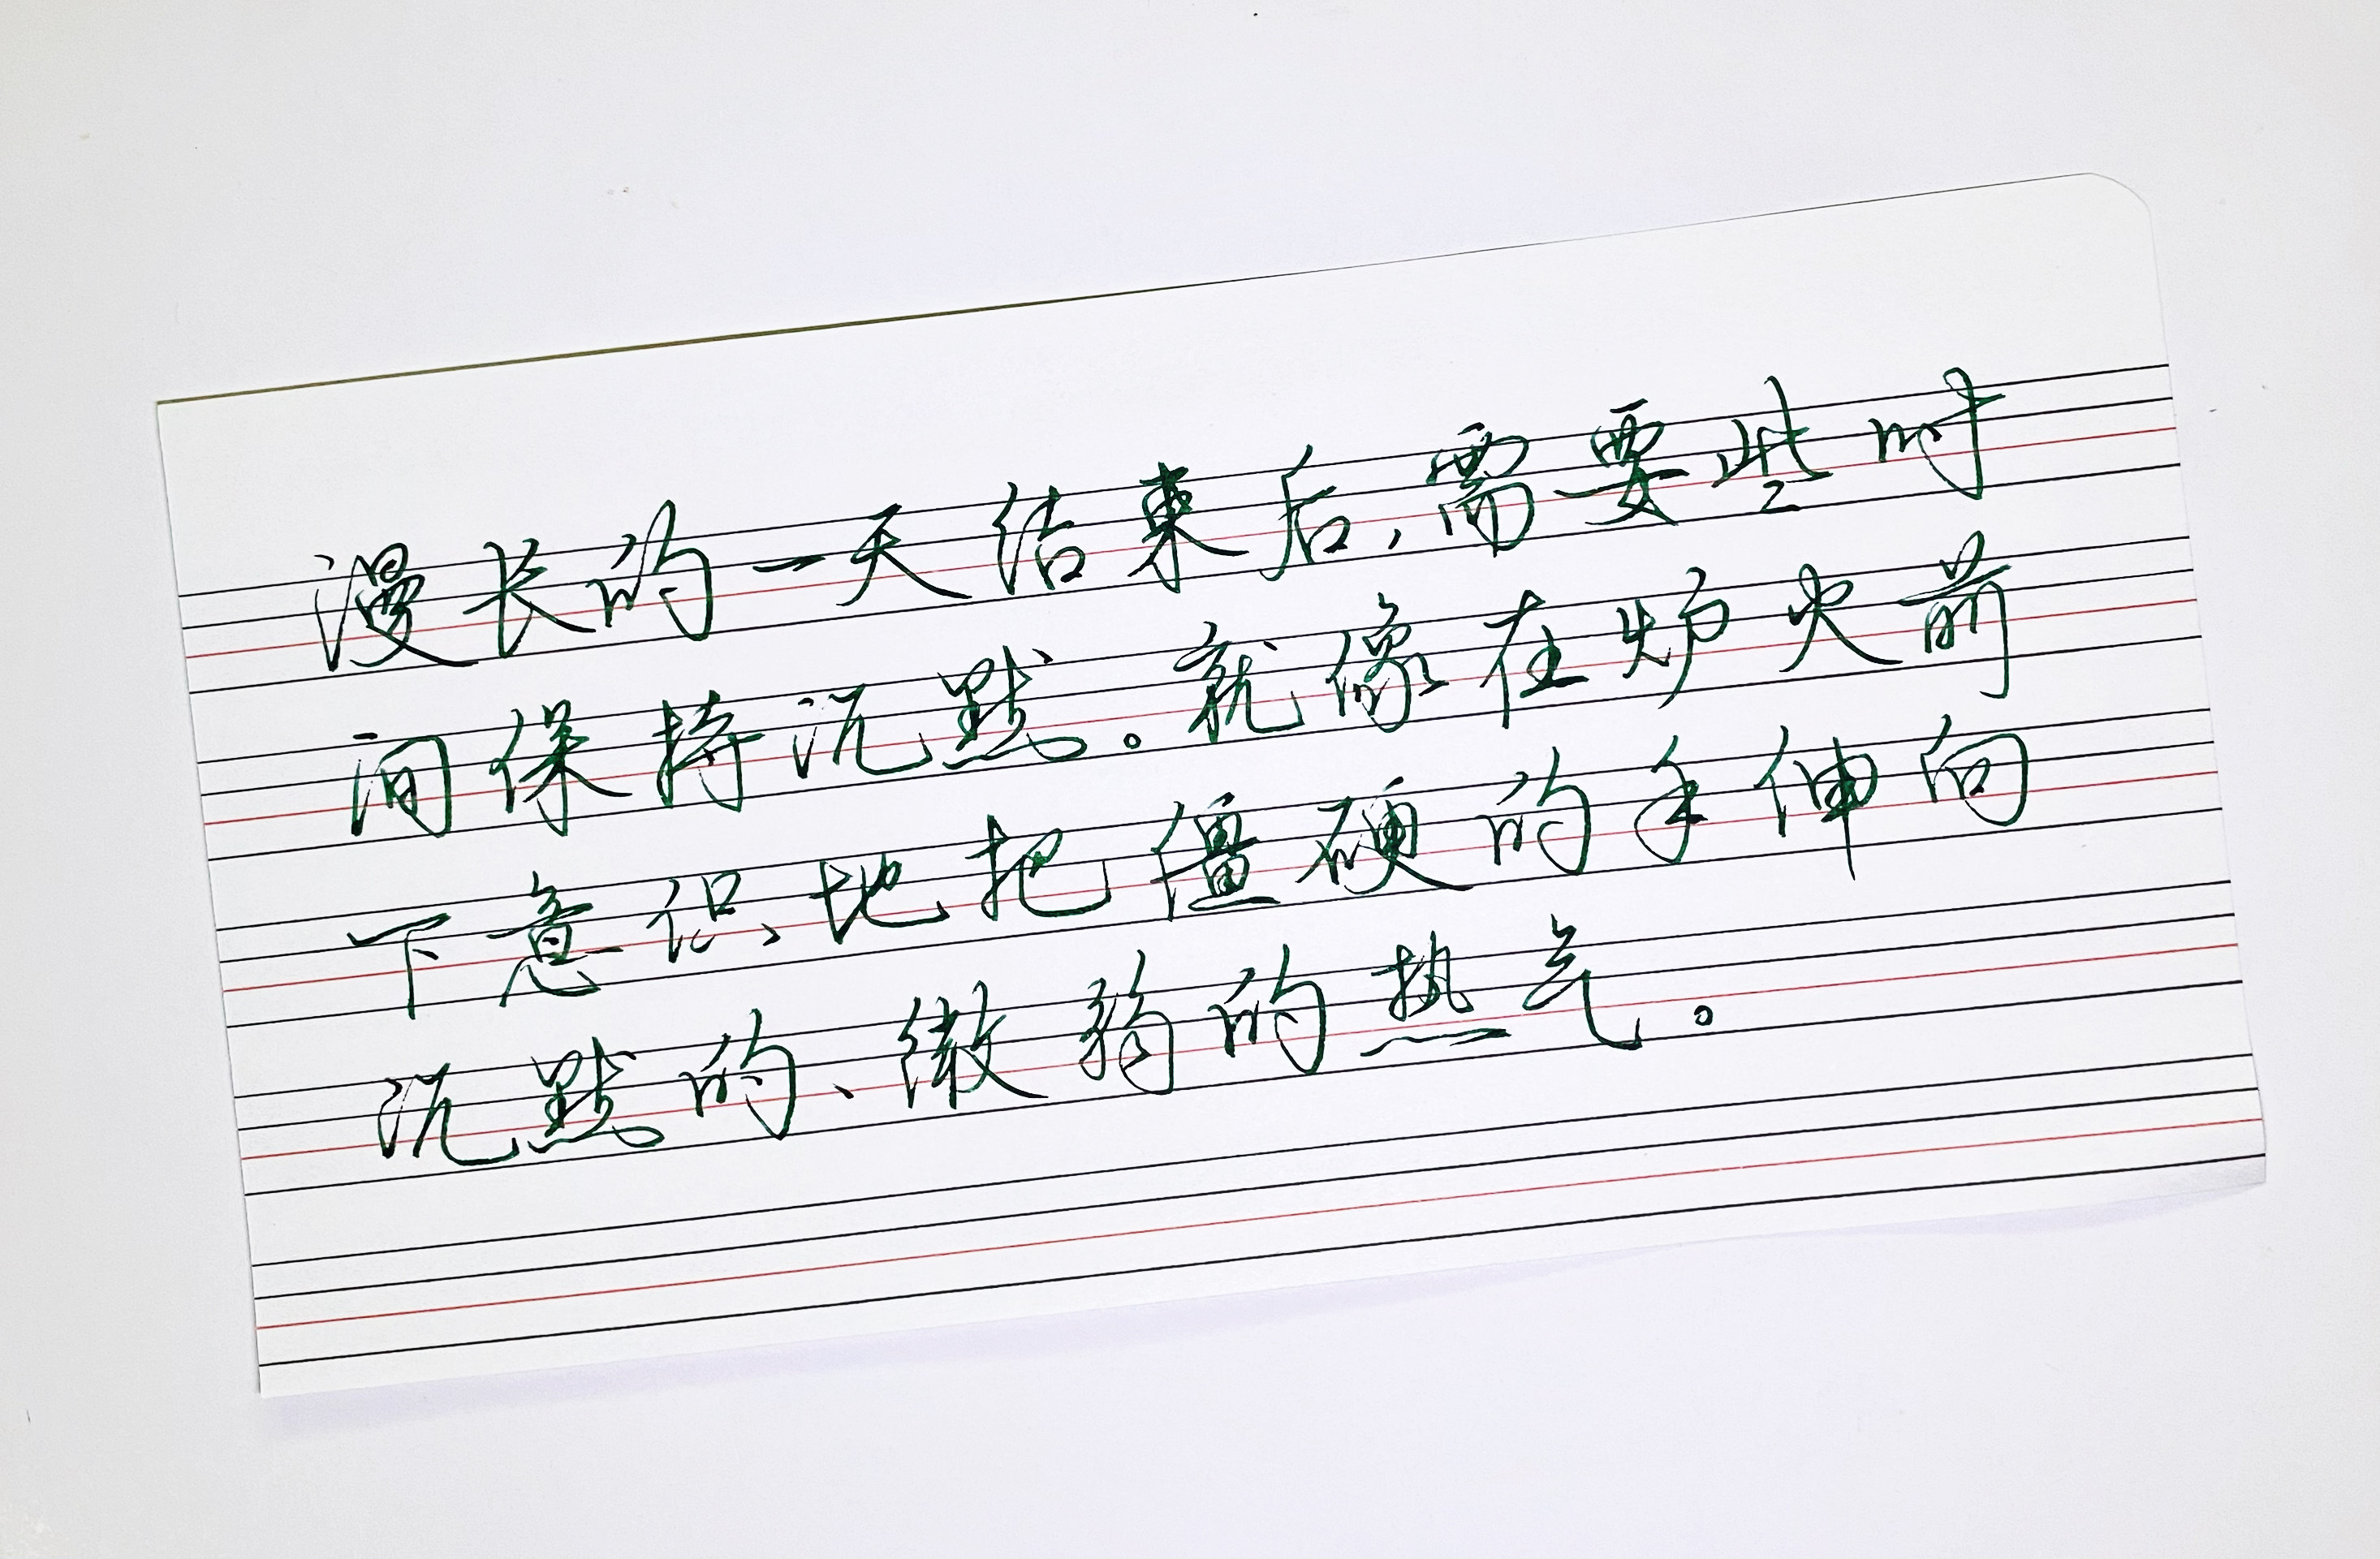 漫长的一天结束后,需要些时
间保持沉默。就像在炉火前
下意识地把僵硬的手伸向
沉默的、微弱的热气。